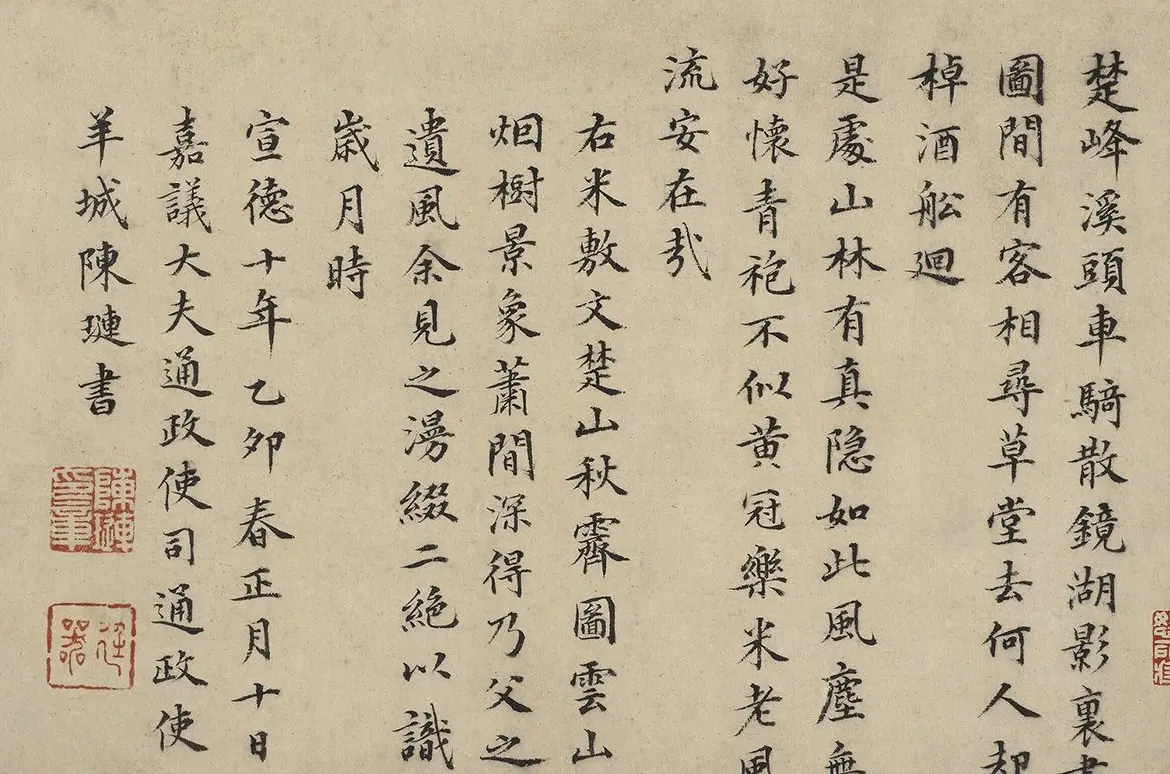 楚峰溪頭車騎散鏡湖影裏
圖間有客相尋草堂去何人却
棹酒舩廻
是處山林有真隐如此風塵無
好懷青袍不似黄冠樂米老風
流安在哉
右米敷文楚山秋霽圖雲山
烟樹景象蕭間深得乃父之
遺風余見之漫綴二絶以識
歲月時
宣德十年乙卯春正月十日
嘉議大夫通政使司通政使
羊城陳璉書
陳璉印章
廷器